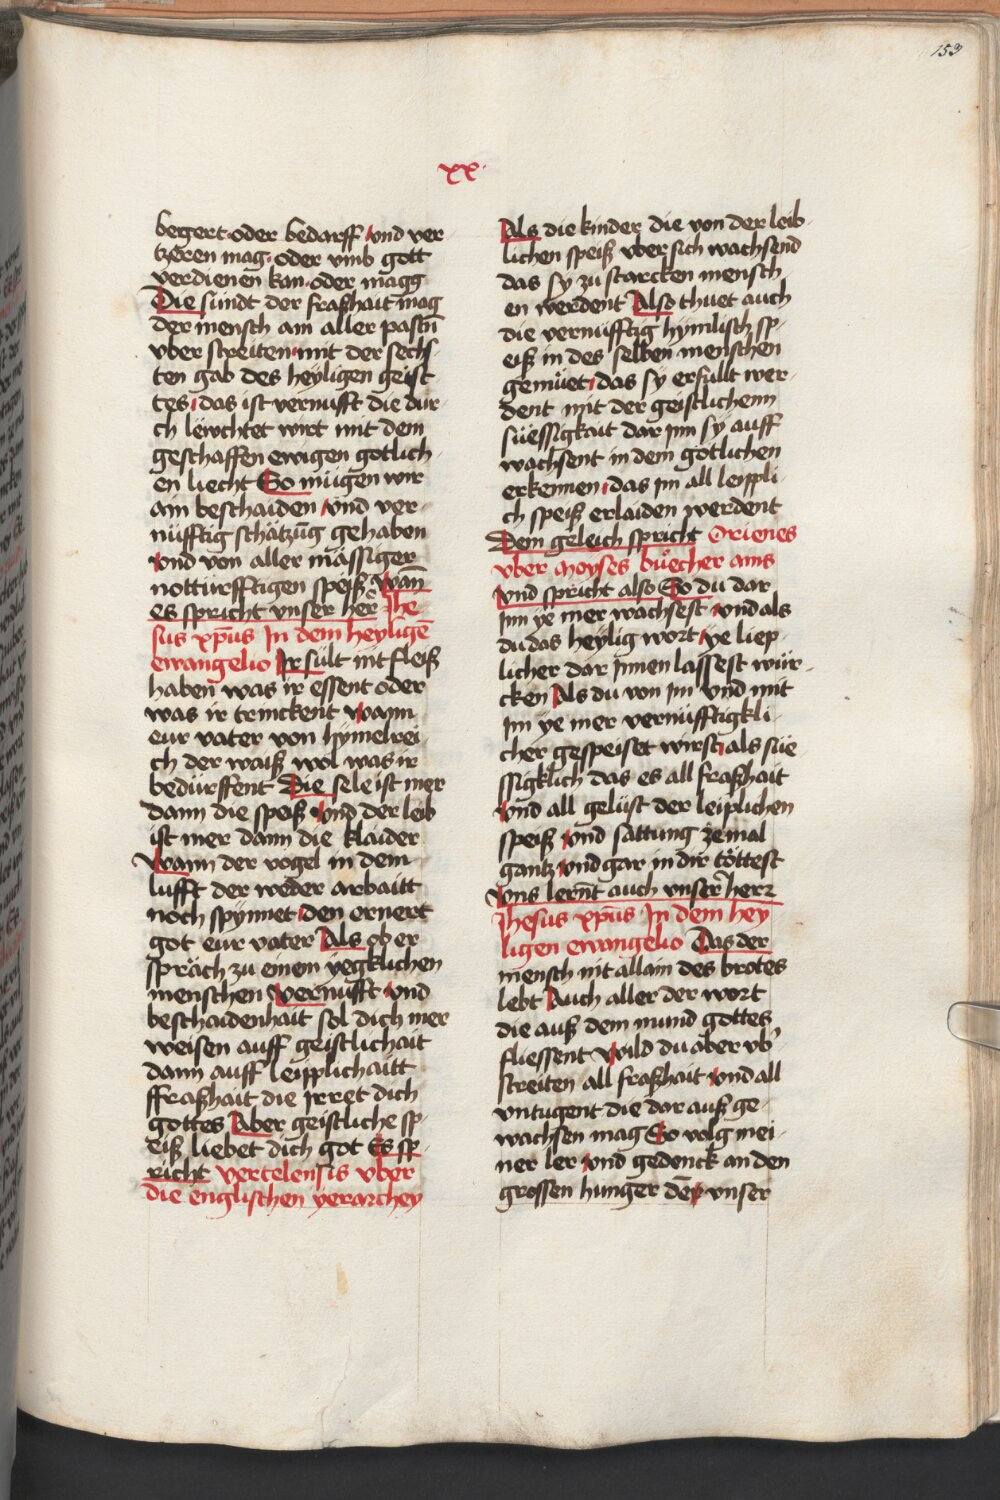 153
xx
begert oder bedarff vnd ver
tzeren mag oder vmb gott
verdienen kan oder magg
Die sündt der fraßhait mag
der mensch am aller pastn̄
vber streiten mit der sechs-
ten gab des heyligen geist
tes das ist vernufft die dur-
ch lewchtet wirt mit dem
geschaffen ewigen götlich-
en liecht So mügen wir
ain beschaiden vnd ver-
nüfftig schätzūg gehaben
vnd von aller mässiger
notturfftigen speiß wan̄
es spricht vnser her̄ Jhe
sus xp̄us In dem heylīgē
ewangelio Ir sült nit fleiß
haben was ir essent oder
was ir trinckent wann
eur vater von hymelrei-
ch der waiß wol was ir
bedürffent Die sele ist mer
dann die speiß vnd der leib
ist mer dann die klaider
Wann der vogel in dem
lufft der weder arbaitt
noch spynnet den ernert
got eur vater Als ob er
spräch zu einem yegklichen
menschen vernufft vnd
beschaidenhait sol dich mer
weisen auff geistlichait
dann auff leipplichaitt
ffraßhait die irret dich
gottes Aber geistliche sp-
eiß liebet dich got Es sp-
richt vercelensis vber
die englischen yerarchey
Als die kinder die von der leib-
lichen speiß vber sich wachsend
das sy zu starcken mensch
en werdent Also thuet auch
die vernüfftig hymlisch sp-
eiß in des selben menschen
gemüet das sy erfullt wer-
dent mit der geistlichenn
süessigkait dar inn sy auff
wachsent in dem götlichen
erkennen das im all leyppli-
ch speiß erlaiden werdent
Dem geleich spricht Orienes
vber moyses büecher ains
vnd spricht also So du dar
inn ye mer wachsest vnd als
du das heylig wort ye liep-
licher dar innen lassest wür-
cken Als du von im vnd mit
im ye mer vernüfftigkli-
cher gespeiset wirst als süe
ssigklich das es all fraßhait
vnd all gelüst der leiplichen
speiß vnd sattung zemal
gantz vnd gar in dir töttest
Vns lernt auch vnser herr
Jhesus xp̄us In dem hey
ligen ewangelio Das der
mensch nit allain des brotes
lebt Auch aller der wort
die auß dem mund gottes
fliessent Wild du aber vb̄
streiten all fraßhait vnd all
vntugent die dar auß ge-
wachsen mag So volg mei-
ner ler vnd gedenck an den
grossen hunger den vnser